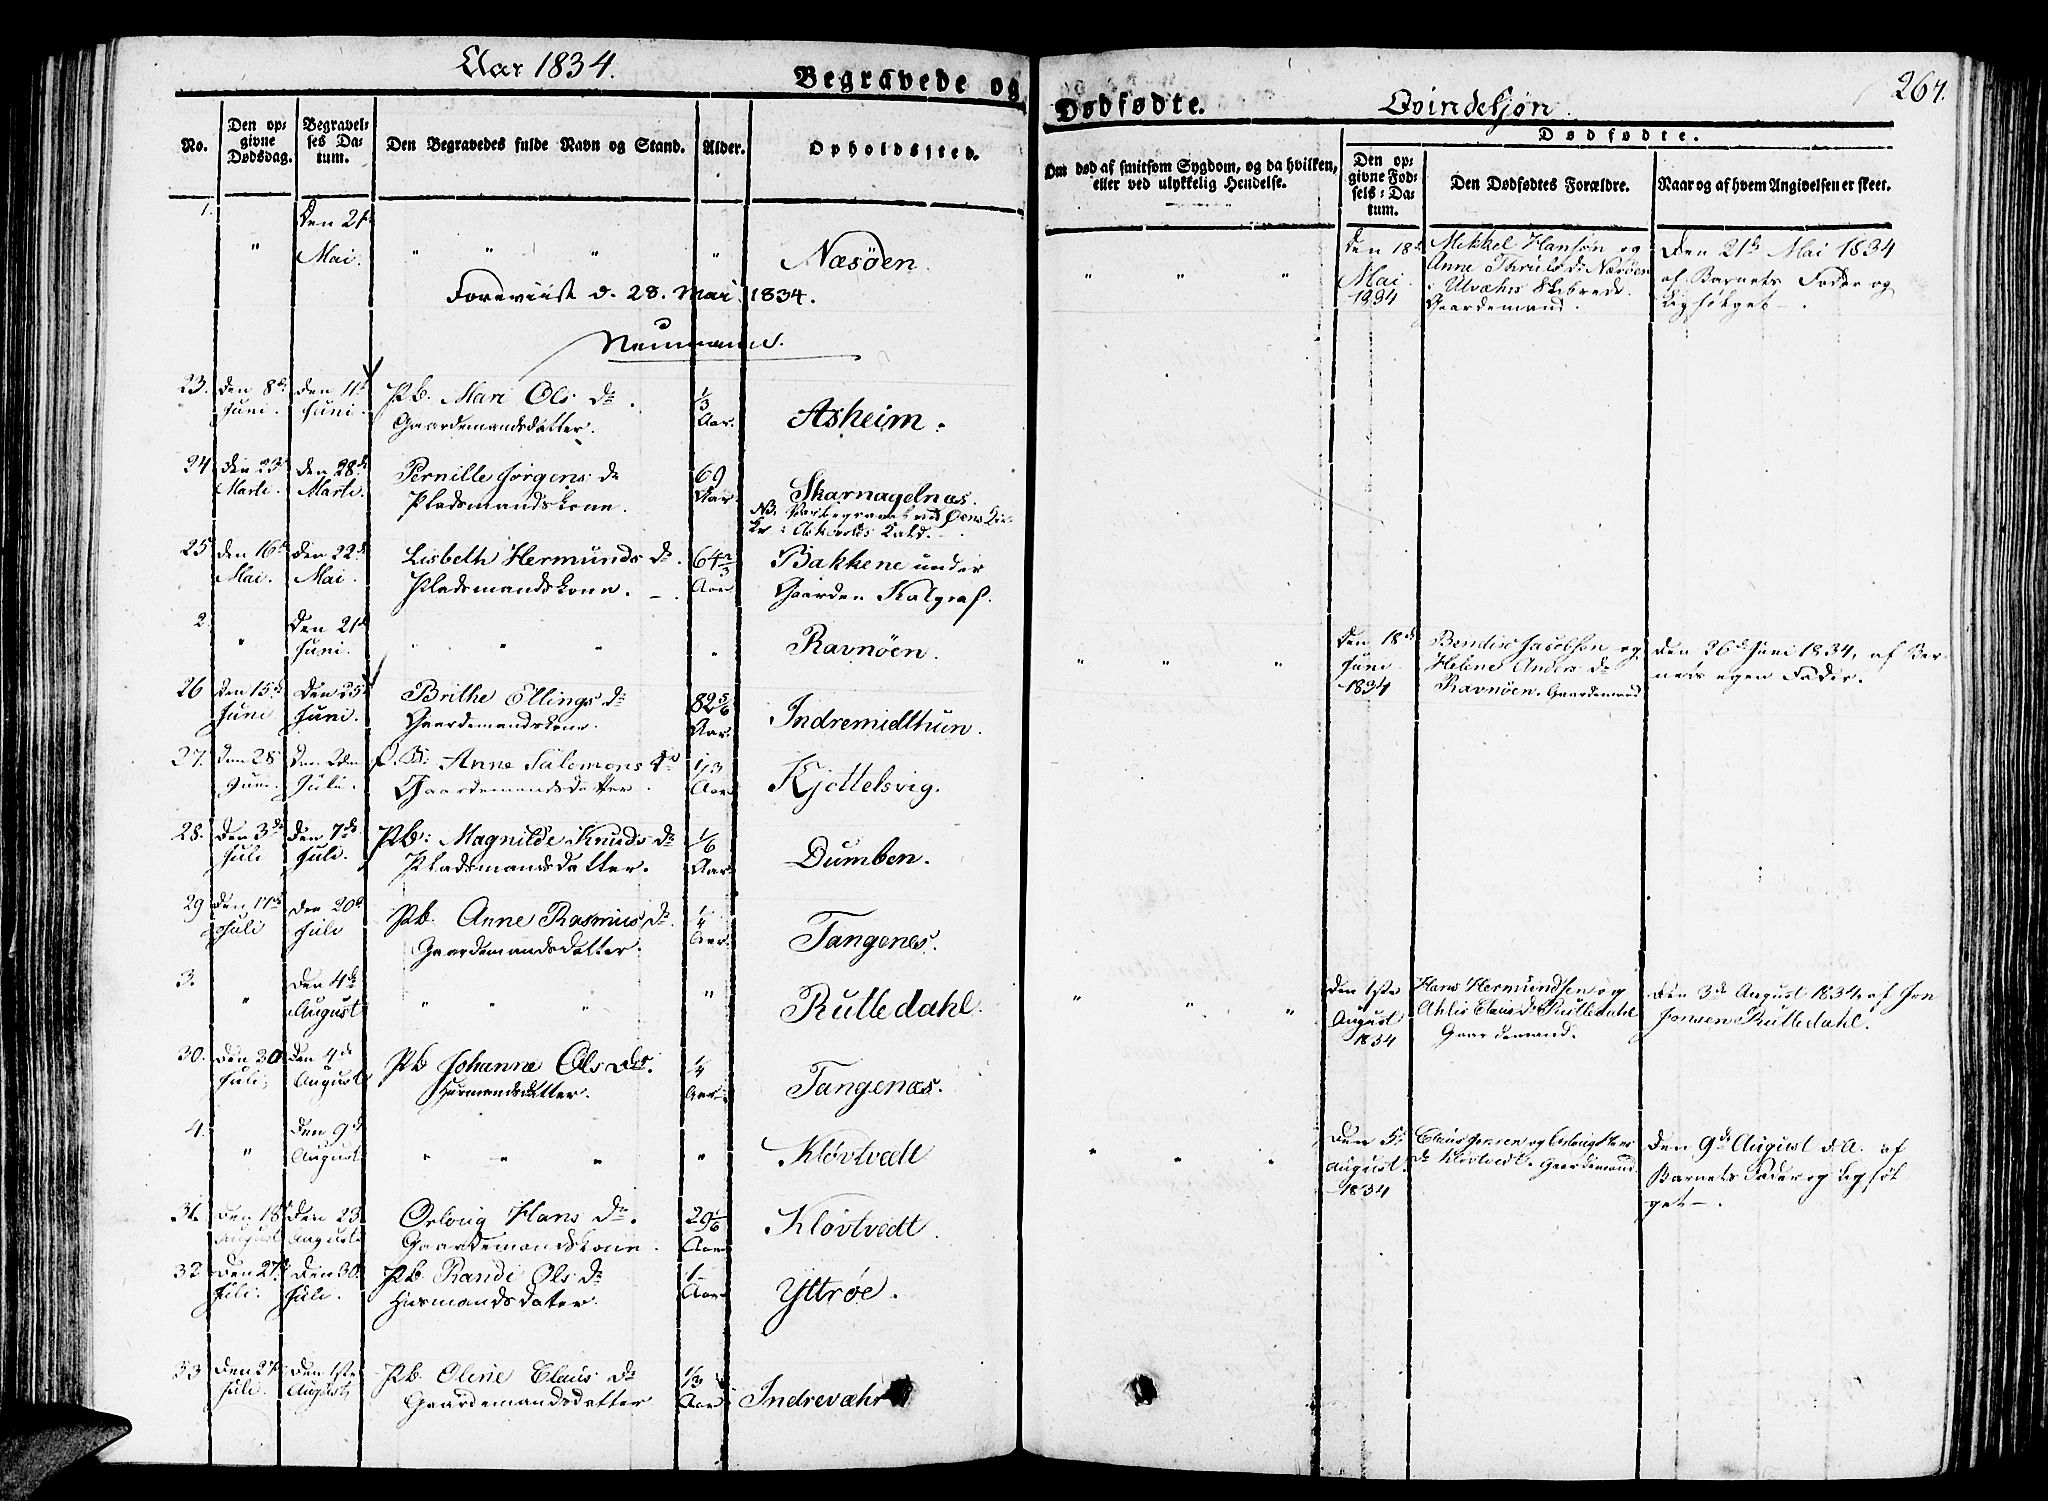 Aar 1834.
Begravede og
Dødfødte.
Qvindekjøn.
264.
No.
Den op-
givne
Dødsdag.
Begravel-
ses Da-
tum.
Den Begravedes fulde Navn og Stand.
Alder.
Opholdssted.
Om død af smitsom Sygdom, og da hvilken,
eller ved ulykkelig Hendelse.
Dødfødte.
Den op-
givne Fød-
sels-Da-
tum.
Den Dødfødtes Forældre.
Naar og af hvem Angivelsen er skeet.
1.
"
Den 21de
Mai.
" " " "
Næsøen.
" " "
Den 18de
Mai
1834
Mikkel Hansøn og
Anne Thruls Dr Næsøen
Utvæhrs Skibrede.
Gaardemand.
Den 21de Mai 1834
af Barnets Fader og
Ligfølget.
Foreviist d. 28. Mai 1834.
Neumann.
23.
Den 8de
Juni.
Den 11te
Juni.
Pb. Mari Ols Dr.
Gaardemandsdatter.
1/3
Aar.
Asheim.
24
Den 23de
Marts.
Den 28de
Marts.
Pernille Jørgens Dr
Pladsmandskone.
69
Aar
Skarnagelnæs.
NB. Var begravet ved Øens Kir-
ke i Askevolds Kald.
25
Den 16de
Mai.
Den 22de
Mai.
Lisbeth Hermunds Dr.
Pladsmandskone.
64 2/3
Aar
Bakkene under
Gaarden Kalgraf.
2.
"
Den 21de
Juni.
" " " "
Ravnøen.
" " "
Den 18de
Juni
1834
Bendix Jacobsøn og
Helene Anders Dr
Ravnøen. Gaardemand
Den 26de Juni 1834, af Bar-
nets egen Fader.
26
Den 15de
Juni
Den 25de
Juni.
Brithe Ellings Dr
Gaardemandskone.
82 5/6
Aar.
Indremidthun.
27.
Den 28
Juni.
Den 2den
Julii.
P. B: Anne Salemons Dr
Gaardemandsdatter.
1/3
Aar
Kjettelsvig.
28.
Den 3de
Juli
Den 7de
Juli.
Pb: Magnilde Knuds Dr
Pladsmandsdatter.
1/6
Aar.
Dumben.
29
Den 17de
Juli
Den 20de
Juli
Pb. Anne Rasmus Dr.
Gaardemandsdatter.
1/4
Aar.
Tangenes.
3.
"
Den 4de
August
" " " "
Rutledahl.
" " "
Den 1ste
August
1834
Hans Hermundsen og
Ahlis Claus Dr Rutledahl
Gaardemand.
Den 3de August 1834, af Jon
Jonsen Rutledahl.
30.
Den 30
Juli.
Den 4de
August
Pb Johanna Ols Dr.
Husmandsdatter.
1/4
Aar.
Tangenæs.
4.
"
Den 9de
August
" " " "
Kløvtvedt
" " "
Den 5te
August.
1834
Claus Jensen og Oslaug Hans
Dr Kløvtvedt. Gaardemand.
Den 9de August d. A. af
Barnets Fader og Ligføl-
get.
31.
Den 18
August
Den 23
August
Oslaug Hans Dr.
Gaardemandskone.
29 1/6
Aar
Kløvtvedt.
32
Den 27de
Juli.
Den 30te
Juli.
Pb. Randi Ols Dr
Husmandsdater.
1
Aar
Yttrøe.
33
Den 27de
Juli.
Den 1ste
August
Pb. Oline Claus Dr
Gaardemandsdatter
1/3
Aar
Indrevæhr